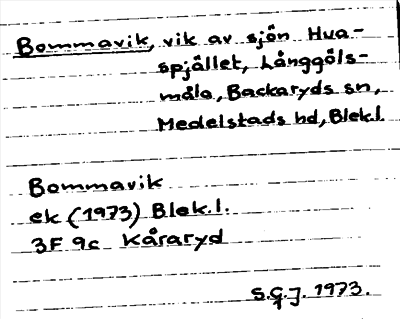 Bommavik, vik av sjön Hua-
spjället, Långgöls-
måla, Backaryds sn,
Medelstads hd, Blek.l.
Bommavik
ek (1973) Blek.l.
3F 9c Kåraryd
S.G.J. 1973.